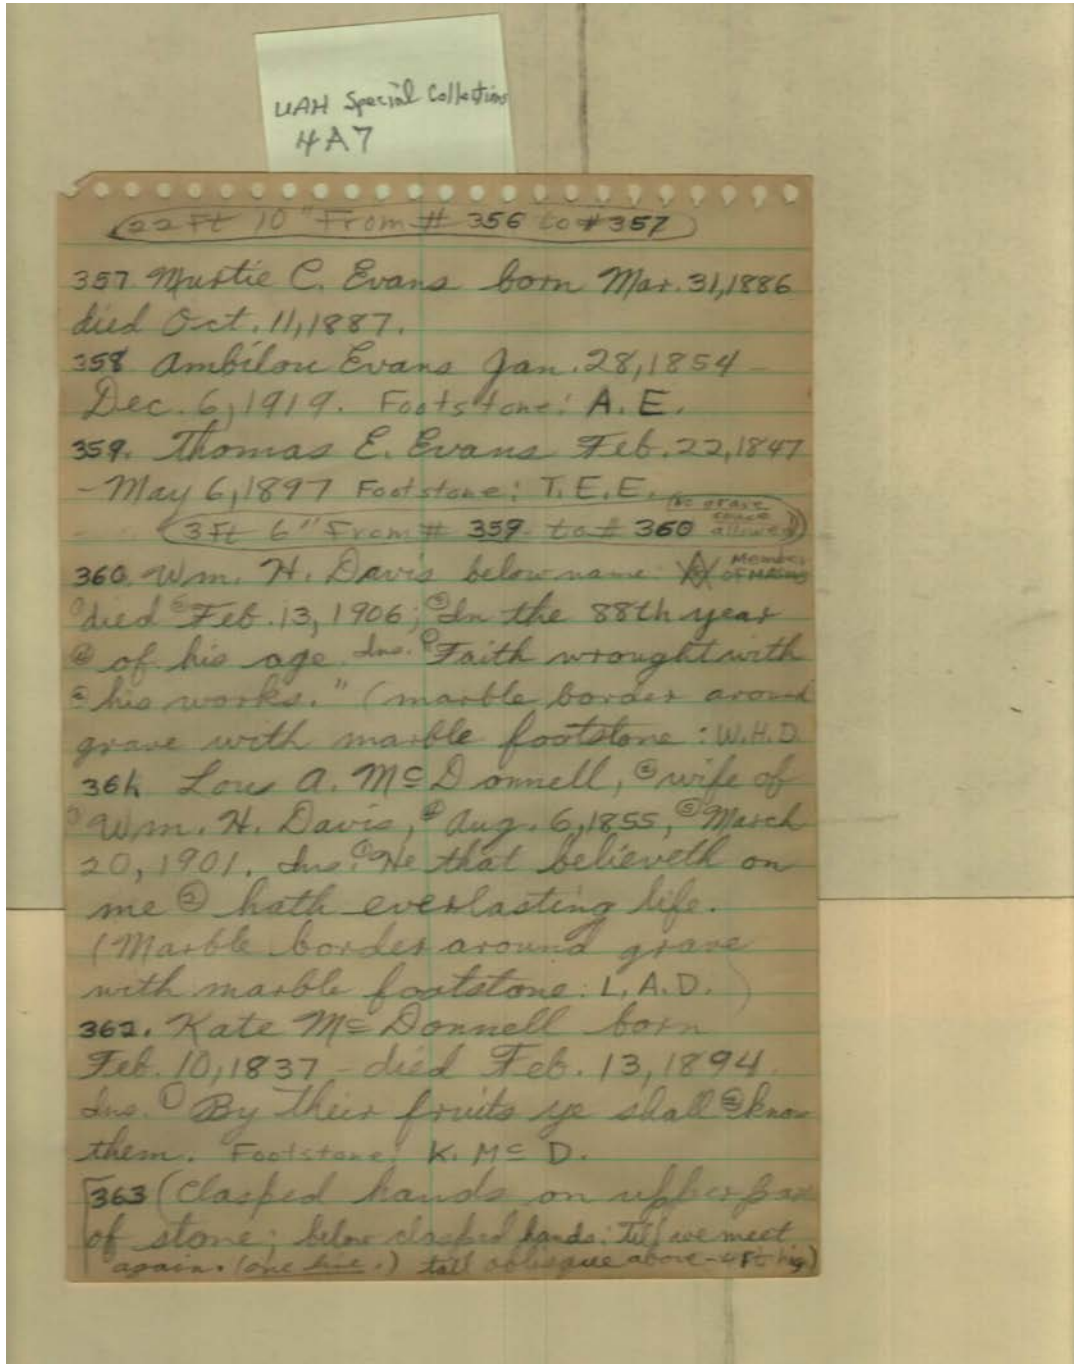 UAH Special Collections
4A7
22 Ft 10" From # 356 to # 357
357. Murtie C. Evans born Mar. 31, 1886
died Oct. 11, 1887.
358 Ambilou Evans Jan. 28, 1854 -
Dec. 6, 1919. Footstone: A. E.
359. Thomas E. Evans Feb. 22, 1847
- May 6, 1897 Footstone: T. E. E.
No grave
space
3 Ft 6" From # 359 to # 360 allowed
360. Wm. H. Davis below name: Member
OF MASONS
① died ② Feb. 13, 1906; ③ In the 88th year
④ of his age. Ins. ① "Faith wrought with
② his works." (marble border around
grave with marble footstone: W.H.D.
361. Lou A. McDonnell, ② wife of
③ Wm. H. Davis, ④ Aug. 6, 1855, ⑤ March
20, 1901. Ins. ① He that believeth on
me ② hath everlasting life.
(Marble border around grave
with marble footstone: L. A. D.)
362. Kate McDonnell born
Feb. 10, 1837 - died Feb. 13, 1894.
Ins. ① By their fruits ye shall ② know
them. Footstone: K. Mc D.
363 (Clasped hands on upper part
of stone; below clasped hands: Till we meet
again. (one line.) tall oblisque above - 4 Ft hig)